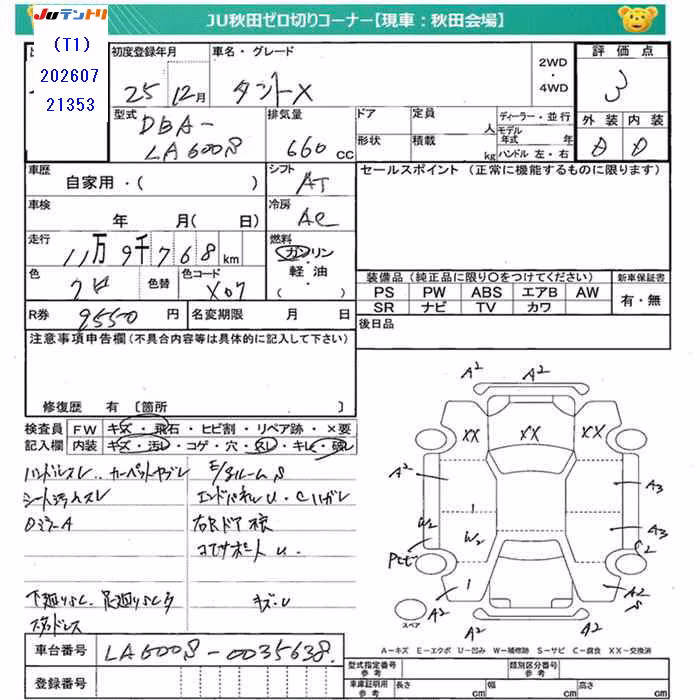 Juテントリ
JU秋田ゼロ切りコーナー【現車：秋田会場】
(T1)
202607
21353
初度登録年月
25 12月
車名・グレード
タントX
2WD
・
4WD
評価点
3
外装 内装
D D
型式
DBA-
LA600S
排気量
660 cc
ドア
定員
人
ディーラー・並行
モデル年式 年
形状
積載
kg
ハンドル 左・右
車歴
自家用・( )
シフト
AT
セールスポイント (正常に機能するものに限ります)
車検
年 月( 日)
冷房
AC
走行
11万9千768km
燃料
ガソリン
・
軽油
・
( )
色
クロ
色替
色コード
X07
装備品 (純正品に限り○をつけてください)
新車保証書
PS PW ABS エアB AW
SR ナビ TV カワ
有・無
R券
9550 円
名変期限
月 日
後日品
注意事項申告欄 (不具合内容等は具体的に記入して下さい)
修復歴 有 〔箇所 〕
検査員
記入欄
FW キズ・飛石・ヒビ割・リペア跡・×要
内装 キズ・汚レ・コゲ・穴・スレ・キレ・破レ
ハンドルスレ、カーペットヤブレ
シート汚れスレ
Dミラー A
E/gルーム S
エンドパネルU・Cハガレ
右Rドア 検
コアサポートU
下廻りSC、足廻りSC多
キズ・U
スペアタイヤレス
A2 A2 A2
XX XX XX
A2
A3
A3
W2
W2
S2
A2
A2
A2
S
スペア
A－キズ E－エクボ U－凹み W－補修跡 S－サビ C－腐食 XX－交換済
車台番号
LA600S-0035638
登録番号
型式指定番号
参考
類別区分番号
参考
車庫証明用
参考
長さ cm
幅 cm
高さ cm